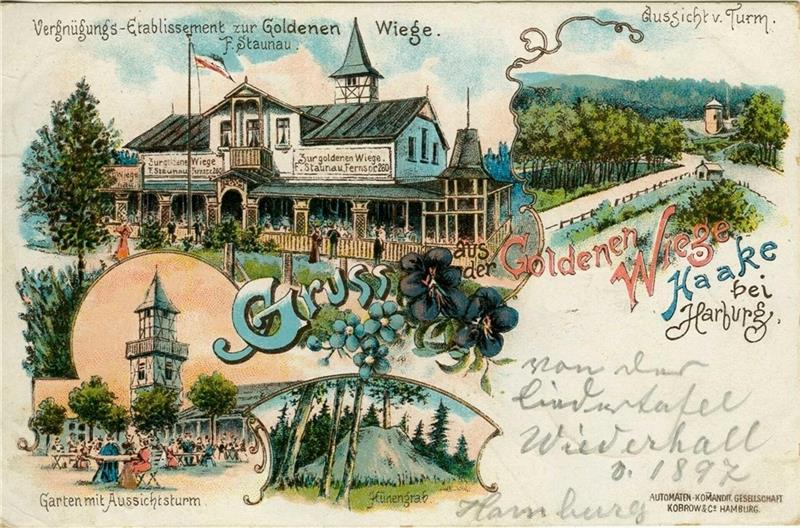 Vergnügungs-Etablissement zur Goldenen Wiege.
F. Staunau.
Aussicht v. Turm.
Zur goldene Wiege
F. Staunau, Fernspr 260
Zur goldenen Wiege.
F. Staunau, Fernspr 260
Gruss aus der Goldenen Wiege
Haake
bei
Harburg.
Garten mit Aussichtsturm.
Hünengrab.
von der
Liedertafel
Wiederhall
1897
Hamburg
AUTOMATEN-KOMANDIT. GESELLSCHAFT
KOBROW & Cº HAMBURG.